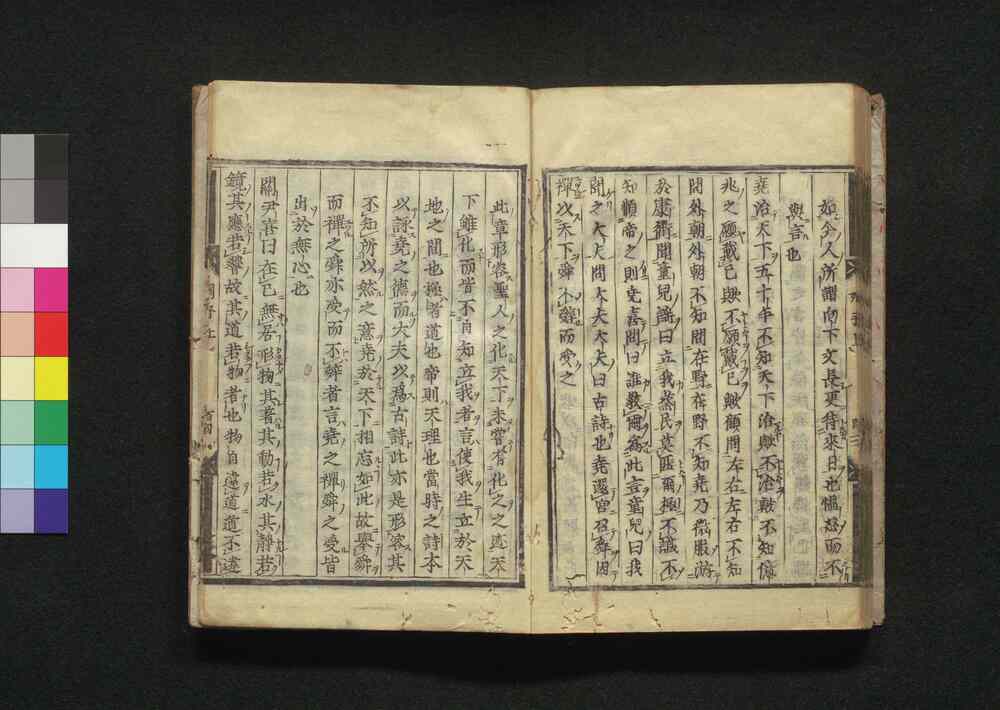 如今人所謂向下文長更待來日也慍怒而不
與言也
堯治天下五十年不知天下治歟不治歟不知億
兆之願戴己歟不願戴己歟顧問左右左右不知
問外朝外朝不知問在野在野不知堯乃微服游
於康衢聞童兒謠曰立我蒸民莫匪爾極不識不
知順帝之則堯喜問曰誰敎爾爲此言童兒曰我
聞之大夫問大夫大夫曰古詩也堯還宮召舜因
禪以天下舜不辭而受之
此章形容聖人之化天下未嘗有化之之迹天
下雖化而皆不自知立我者言使我生立於天
地之間也極者道也帝則天理也當時之詩本
以詠堯之德而大夫以爲古詩此亦是形容其
不知所以然之意堯於天下相忘如此故擧舜
而禪之舜亦受而不辭者言堯之禪舜之受皆
出於無心也
關尹喜曰在己無居形物其著其動若水其靜若
鏡其應若響故其道若物者也物自違道道不違